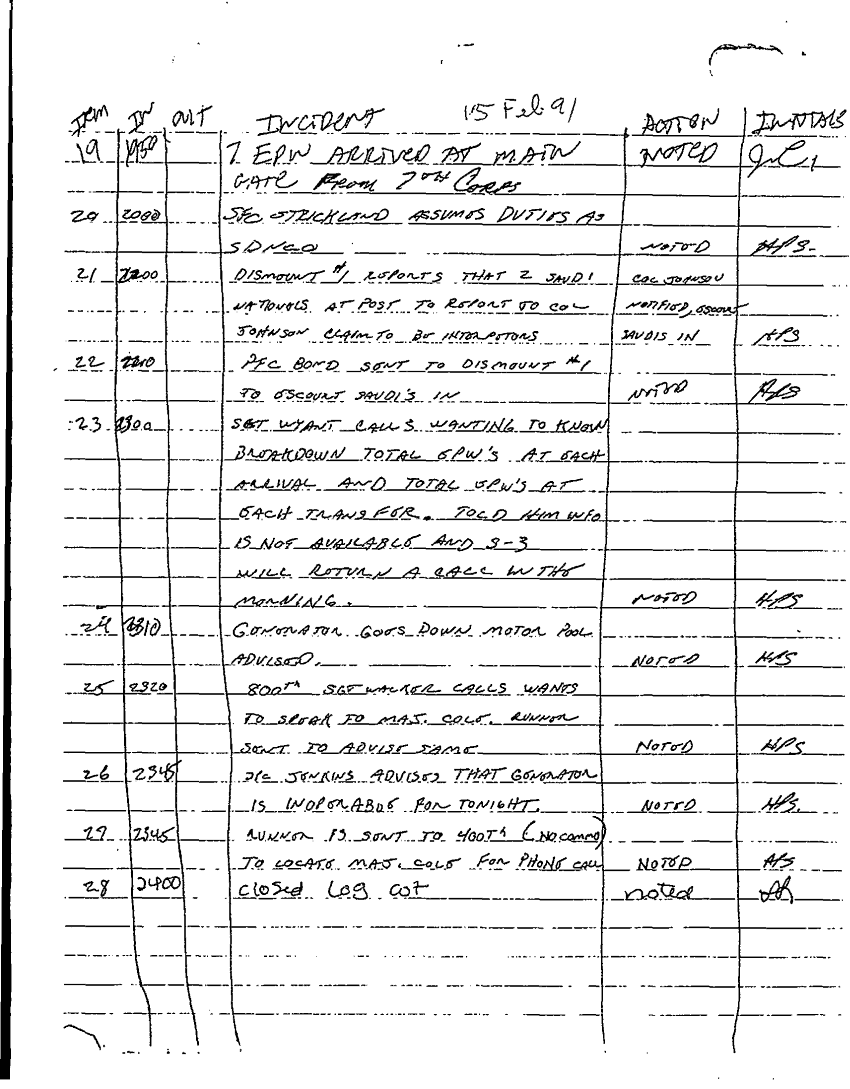 ITEM IN OUT INCIDENT 15 Feb 91 ACTION INITIALS
19 1950 7 EPW ARRIVED AT MAIN NOTED
GATE FROM 7TH CORPS
20 2000 SFC STRICKLAND ASSUMES DUTIES AS
SDNCO NOTED HPS
21 2200 DISMOUNT #1 REPORTS THAT 2 SAUDI COL JOHNSON
NATIONALS AT POST TO REPORT TO COL NOTIFIED, ESCOURT
JOHNSON CLAIM TO BE INTERPETORS SAUDIS IN HPS
22 2210 PFC BOND SENT TO DISMOUNT #1
TO ESCOURT SAUDI'S IN NOTED HPS
23 2300 SGT WYANT CALLS WANTING TO KNOW
BREAKDOWN TOTAL EPW'S AT EACH
ARRIVAL AND TOTAL EPW'S AT
EACH TRANSFER. TOLD HIM INFO
IS NOT AVAILABLE AND S-3
WILL RETURN A CALL IN THE
MORNING. NOTED HPS
24 2310 GENERATOR GOES DOWN MOTOR POOL
ADVISED. NOTED HPS
25 2320 800th SGT WALKER CALLS WANTS
TO SPEAK TO MAJ. COLE. RUNNER
SENT TO ADVISE SAME NOTED HPS
26 2345 JENKINS ADVISES THAT GENERATOR
IS INOPERABLE FOR TONIGHT. NOTED HPS.
27 2345 RUNNER IS SENT TO 400th (No commo)
TO LOCATE MAJ. COLE FOR PHONE CALL NOTED HPS
28 2400 closed Log out noted